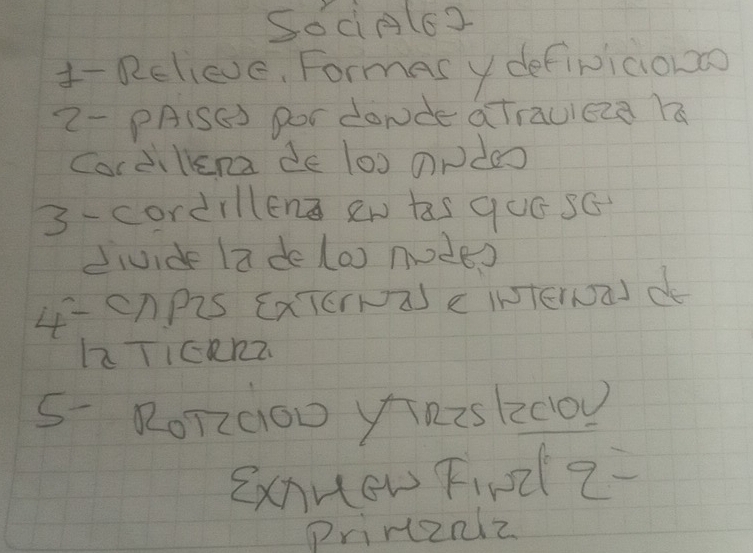 SociAles
1- Relieve. Formas y definiciones
2- PAISES por donde atravieza la
Cordillera de los Andes
3- cordillera en las que se
divide la de los Andes
4- CAPAS EXTERNAS e INTERNAS de
la TIERRA
5- ROTACION y TRASlacion
EXAMEN FINAl 2-
PRIMARIA